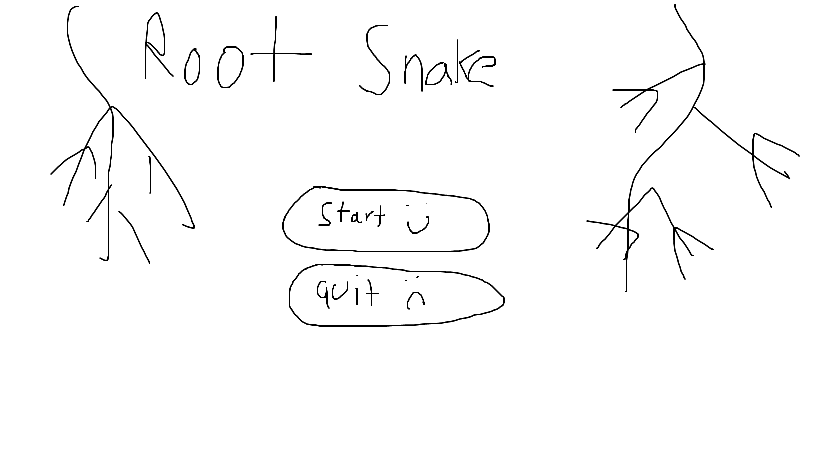 Root Snake
Start
quit